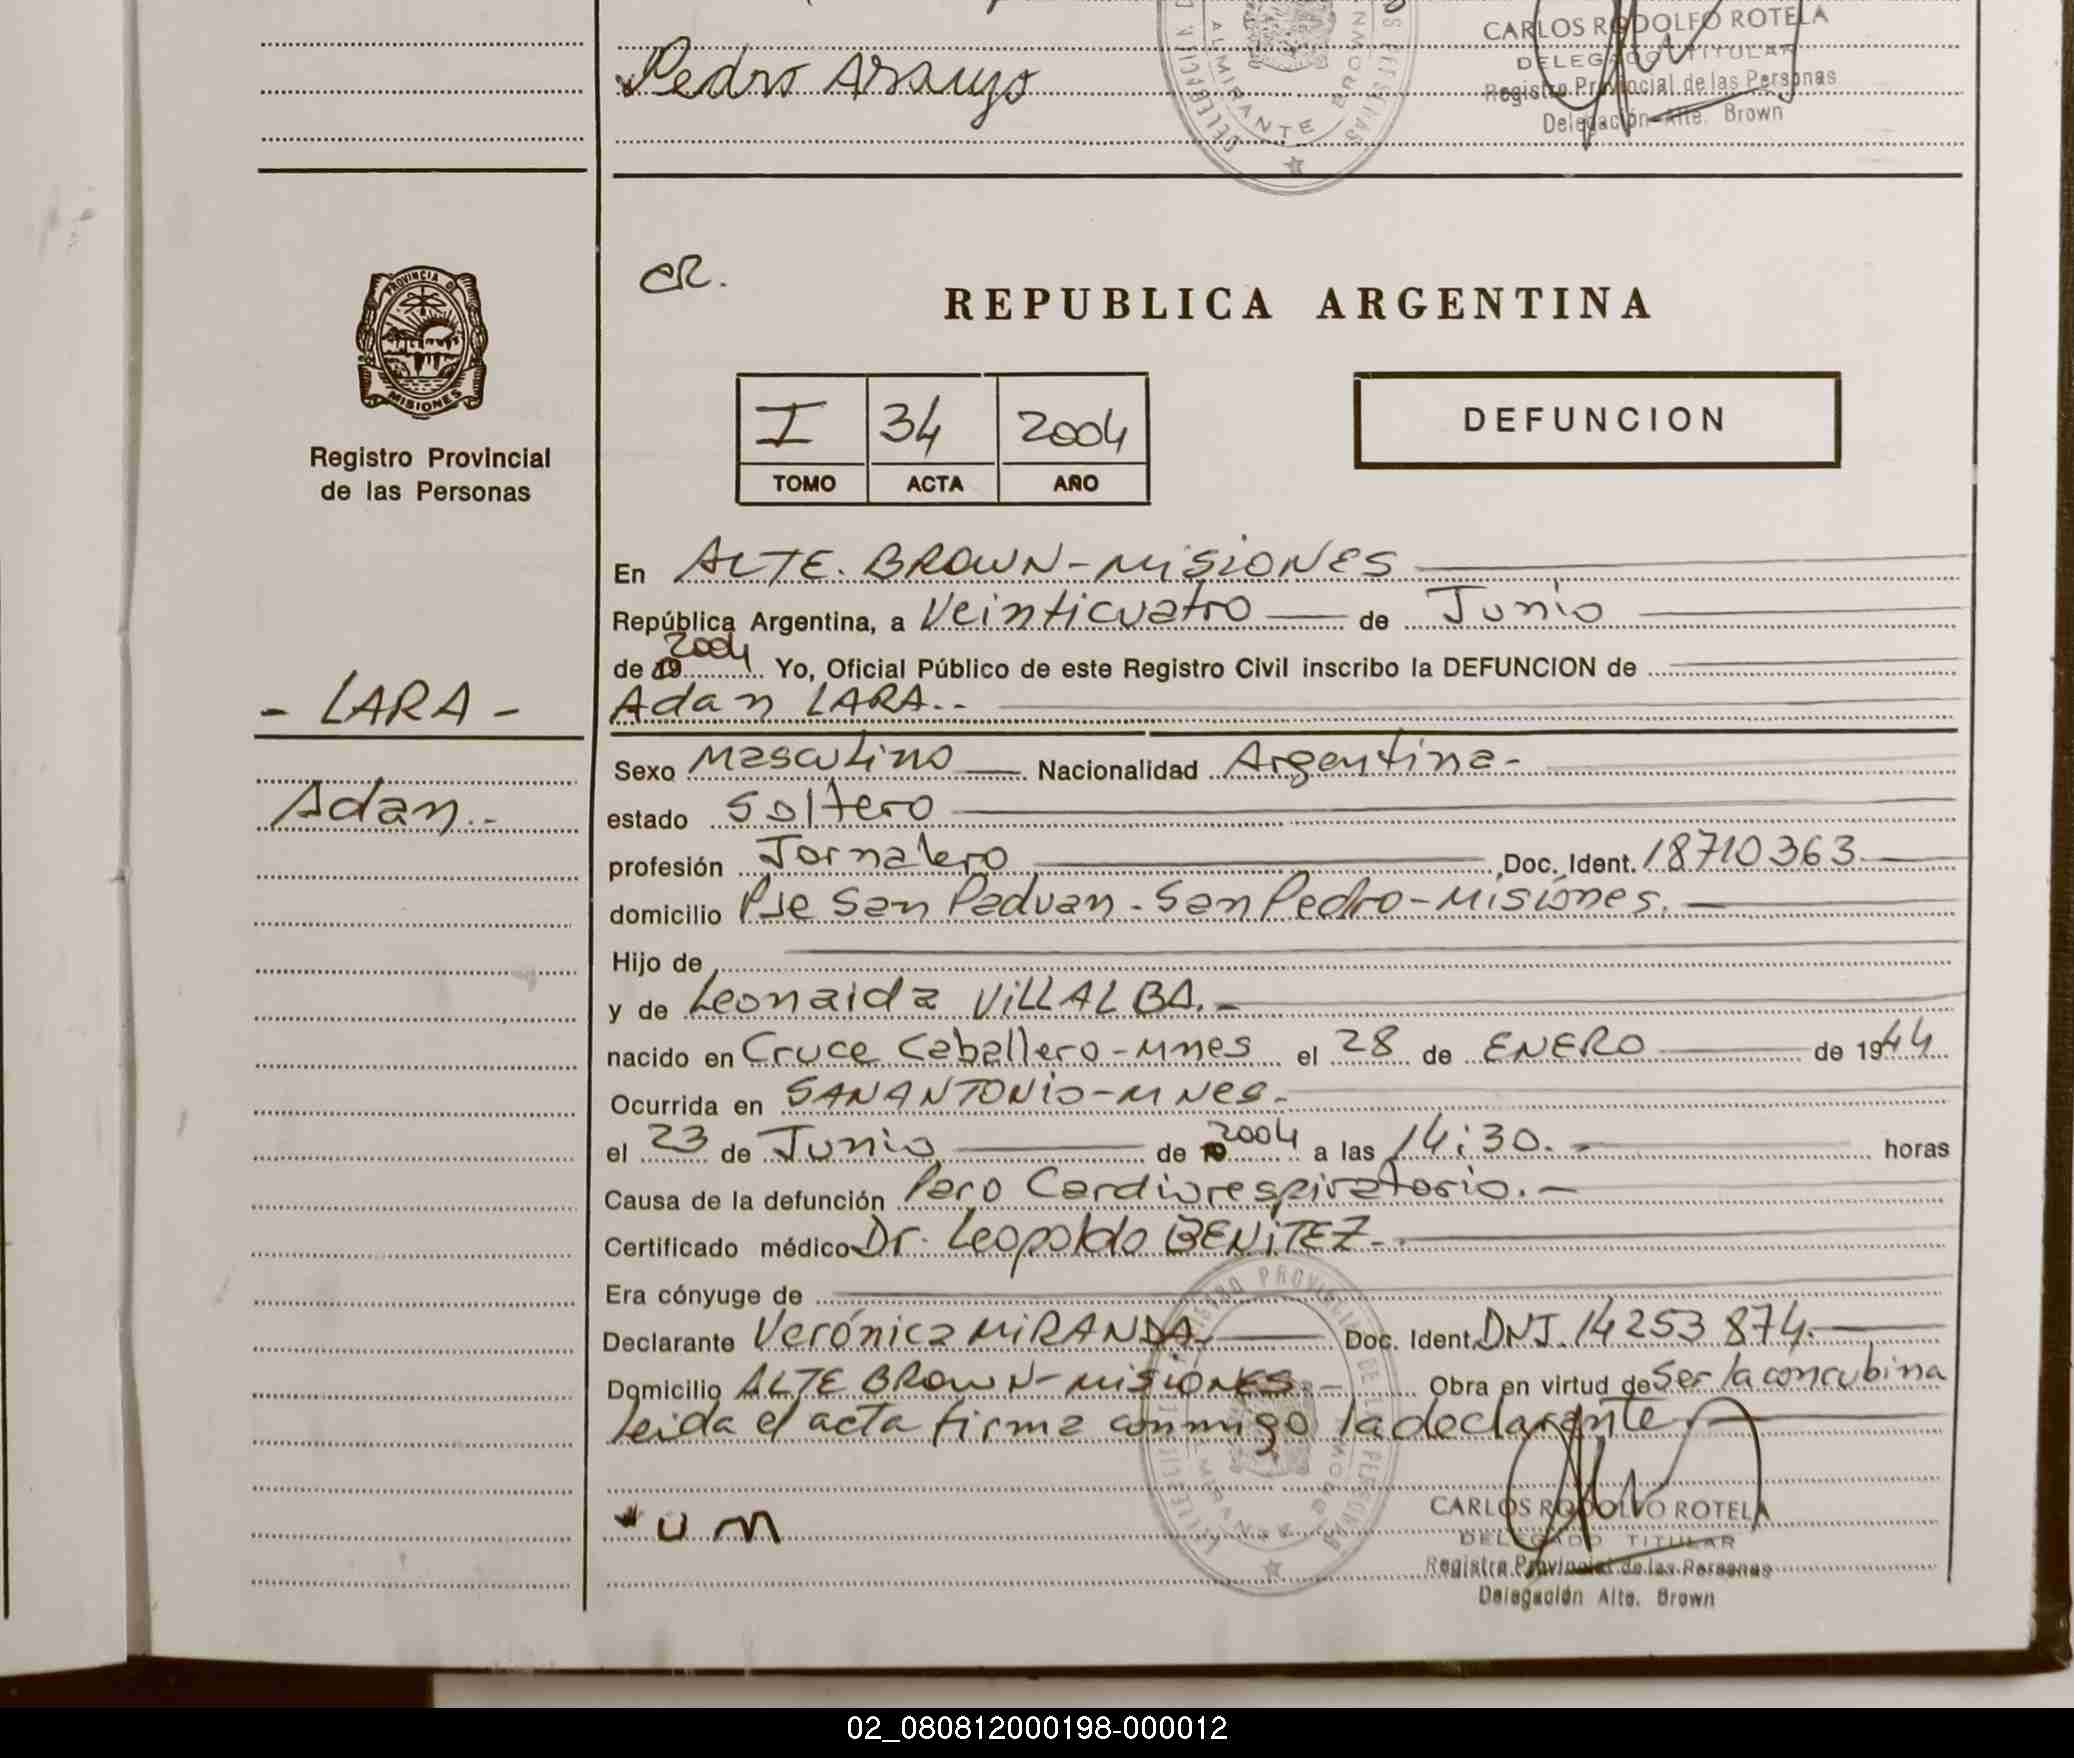 Pedro Araujo
CARLOS RODOLFO ROTELA
DELEGADO TITULAR
Registro Provincial de las Personas
Delegación Alte. Brown
ALMIRANTE BROWN
CR.
REPUBLICA ARGENTINA
PROVINCIA DE
MISIONES
Registro Provincial
de las Personas
I 34 2004
TOMO ACTA AÑO
DEFUNCION
En ALTE. BROWN-MISIONES
República Argentina, a Veinticuatro de Junio
de 19 2004 Yo, Oficial Público de este Registro Civil inscribo la DEFUNCION de
- LARA -
Adan LARA.-
Sexo Masculino Nacionalidad Argentina-
Adan.-
estado Soltero
profesión Jornalero Doc. Ident. 18710363
domicilio Pje San Paduan - San Pedro-Misiones.
Hijo de
y de Leonaida VILLALBA.-
nacido en Cruce Caballero-Mnes el 28 de ENERO de 1944
Ocurrida en SAN ANTONIO-MNes.
el 23 de Junio de 2004 a las 14:30.- horas
Causa de la defunción Paro Cardiorespiratorio.-
Certificado médico Dr. Leopoldo BENITEZ-.
Era cónyuge de
Declarante Verónica MIRANDA. Doc. Ident. DNI. 14253874.
Domicilio ALTE BROWN-MISIONES.- Obra en virtud de Ser la concubina
leida el acta firma conmigo la declarante.
U M
CARLOS RODOLFO ROTELA
DELEGADO TITULAR
Registro Provincial de las Personas
Delegación Alte. Brown
02_080812000198-000012